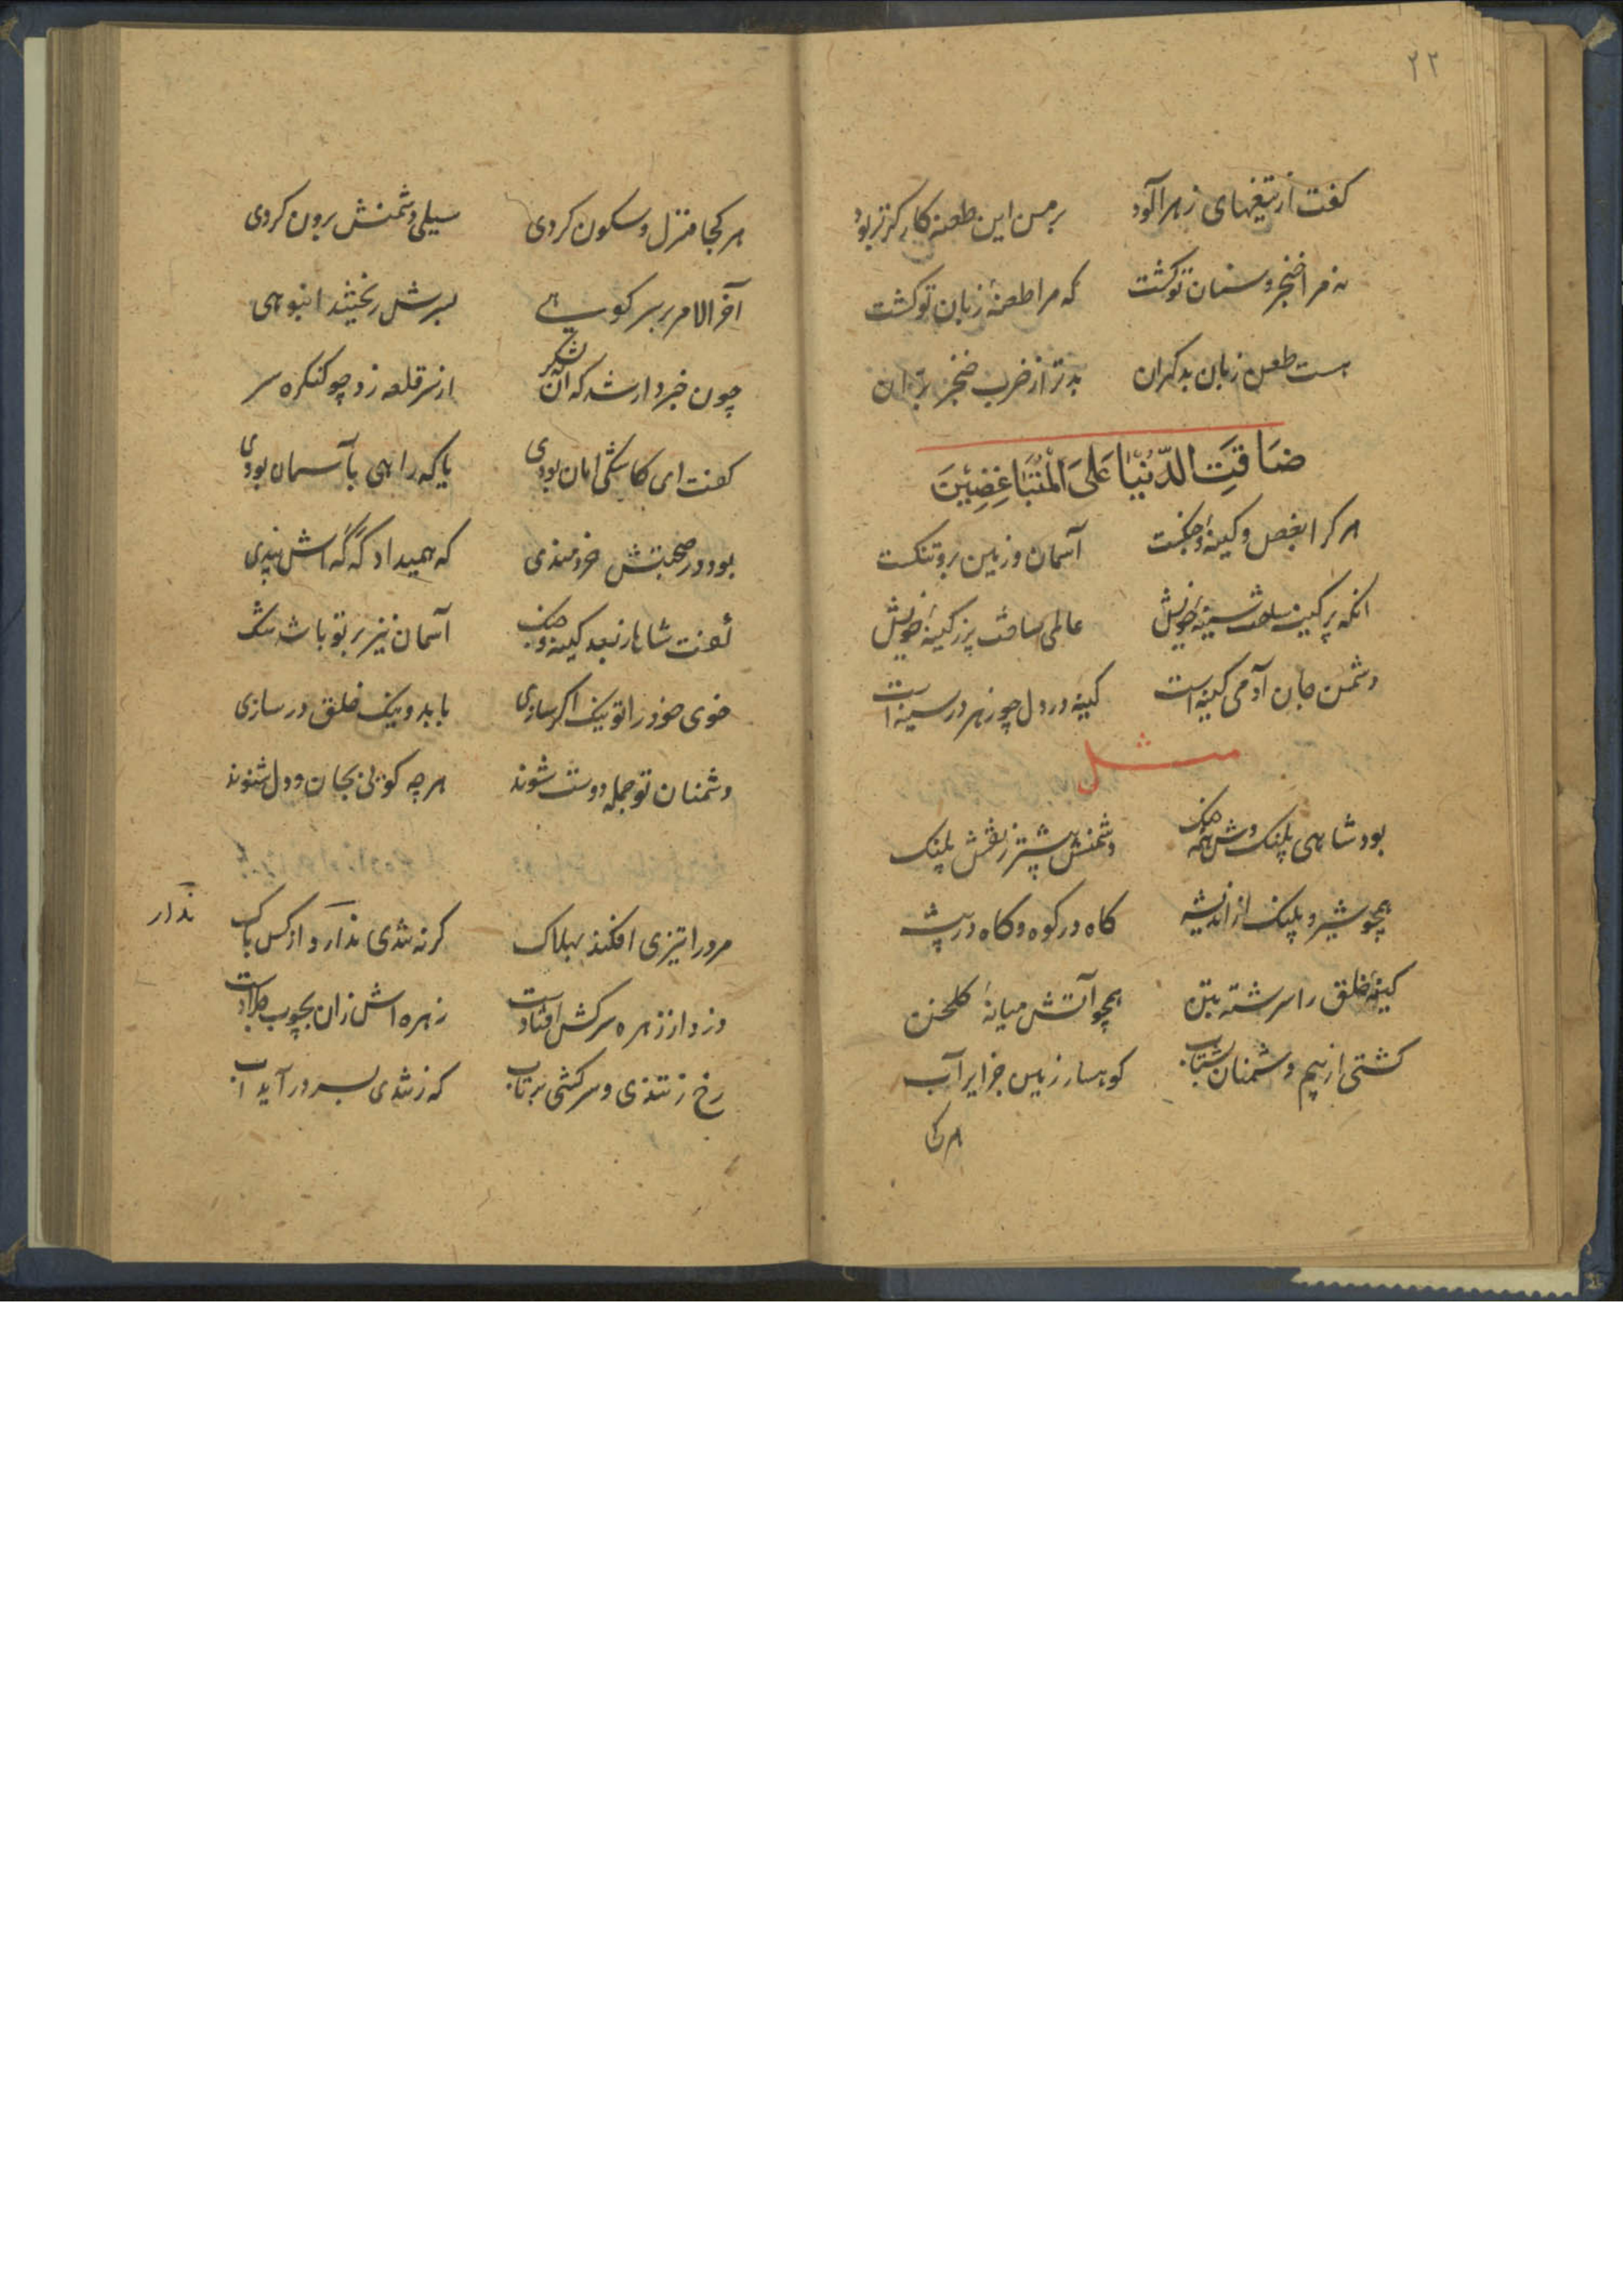 ۲۲
کفت از تیغهای زهرآلود برمن این طعنه کارکرتر بود
نه مرا خنجر و سنان تو کشت که مرا طعنهٔ زبان تو کشت
هست طعن زبان بدکهران بدتر از ضرب خنجر بران
ضَاقَتِ الدُّنْيَا عَلَى الْمُتَبَاغِضِيْنَ
هر کرا بغض و کینهٔ و جنکست آسمان و زمین برو تنکست
انکه پر کینه ساخت سینهٔ خویش عالمی ساخت پر ز کینهٔ خویش
دشمن جان آدمی کینه است کینه در دل چو زهر در سینه است
مثل
بود شاهی پلنک وش همه جنک دشمنش بیشتر ز نقش پلنک
همچو شیر و پلنک از اندیشه کاه در کوه و کاه در بیشه
کینهٔ خلق را سرشته بتن همچو آتش میانهٔ کلخن
کشتی از بیم دشمنان بشتاب کوهسار زمین جزایر آب
هرکجا
هر کجا منزل و سکون کردی سیلی دشمنش برون کردی
آخر الامر بر سر کوهی بسرش ریختند انبوهی
چون خبردار شد که آن لشکر از سر قلعه زد چو کنکره سر
کفت ای کاشکی امان بودی یا که راهی بآسمان بودی
بود در صحبتش خردمندی که همیداد که که اش پندی
کفت شاها ز بعد کینه و جنک آسمان نیز بر تو باشد تنک
خوی خود را تو نیک اکر سازی با بد و نیک خلق در سازی
دشمنان تو جمله دوست شوند هر چه کوئی بجان و دل شنوند
مرد را تیزی افکند بهلاک کر نه تندی ندارد از کس باک
ندارد
دزد از زهره سرکش افتادست زهره اش زان بچوب جلادست
رخ ز تندی و سرکشی برتاب که ز تندی بسر درآید آب